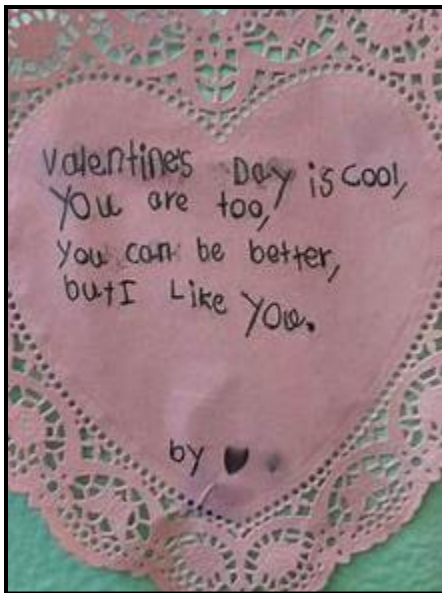 Valentine's Day is cool,
You are too,
You can be better,
but I Like You.
by ♥